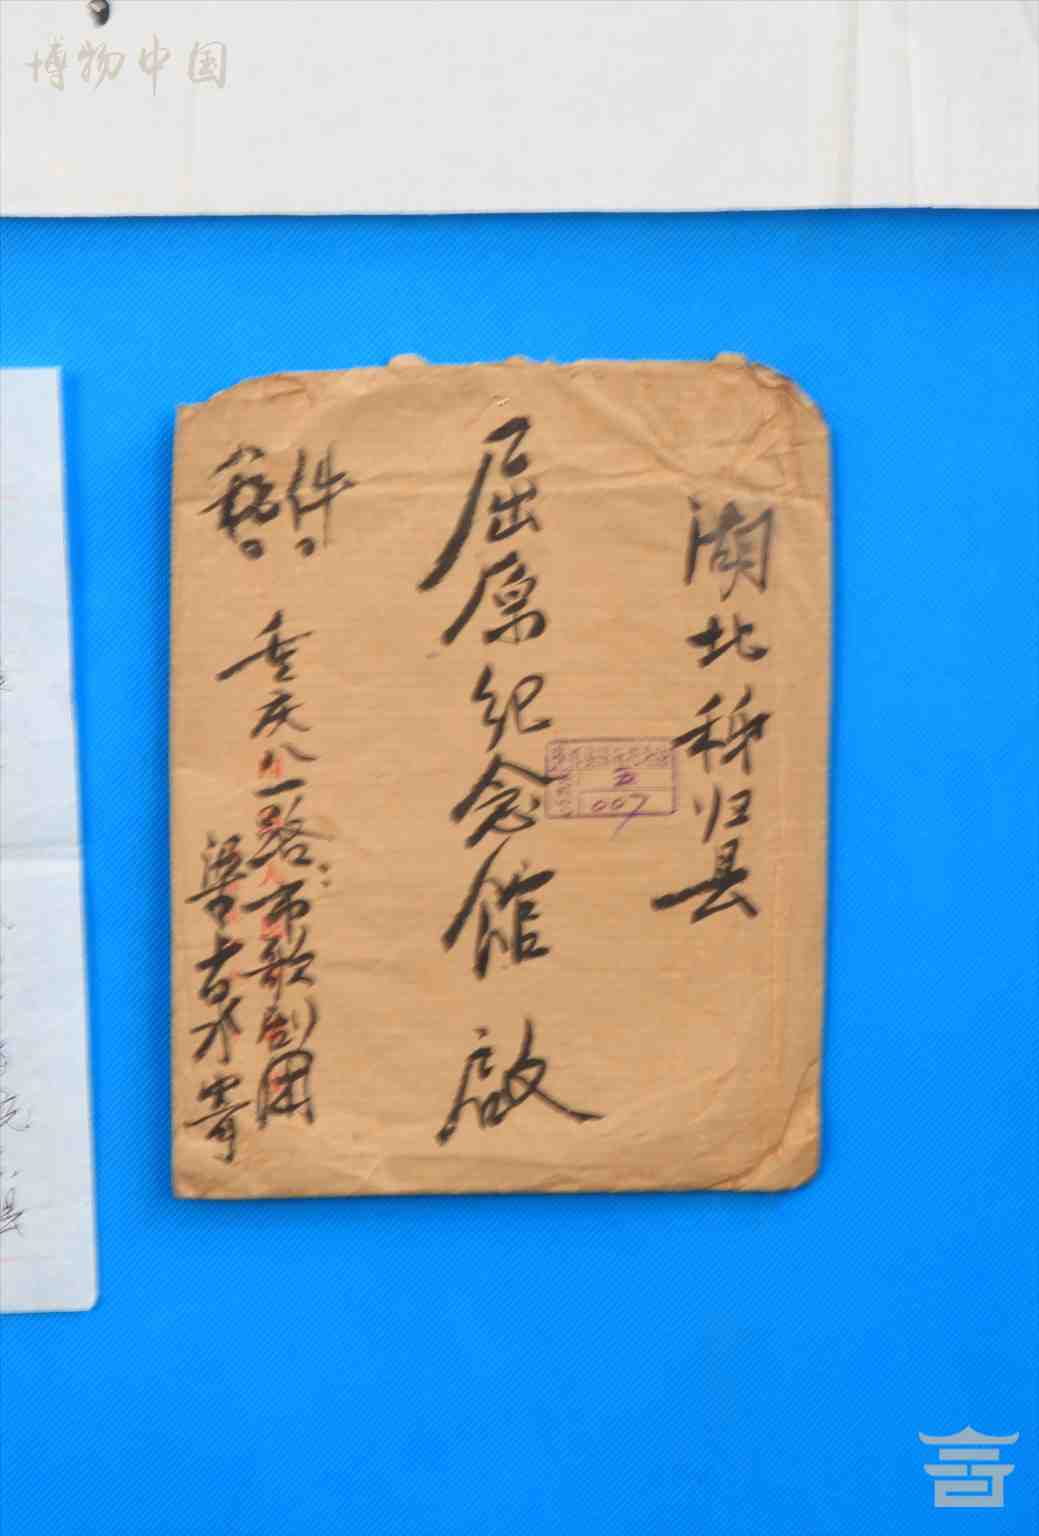 博物中国
湖北秭归县
屈原纪念馆 啟
稿件
重庆八一路:市歌剧团
梁上泉寄
五
007